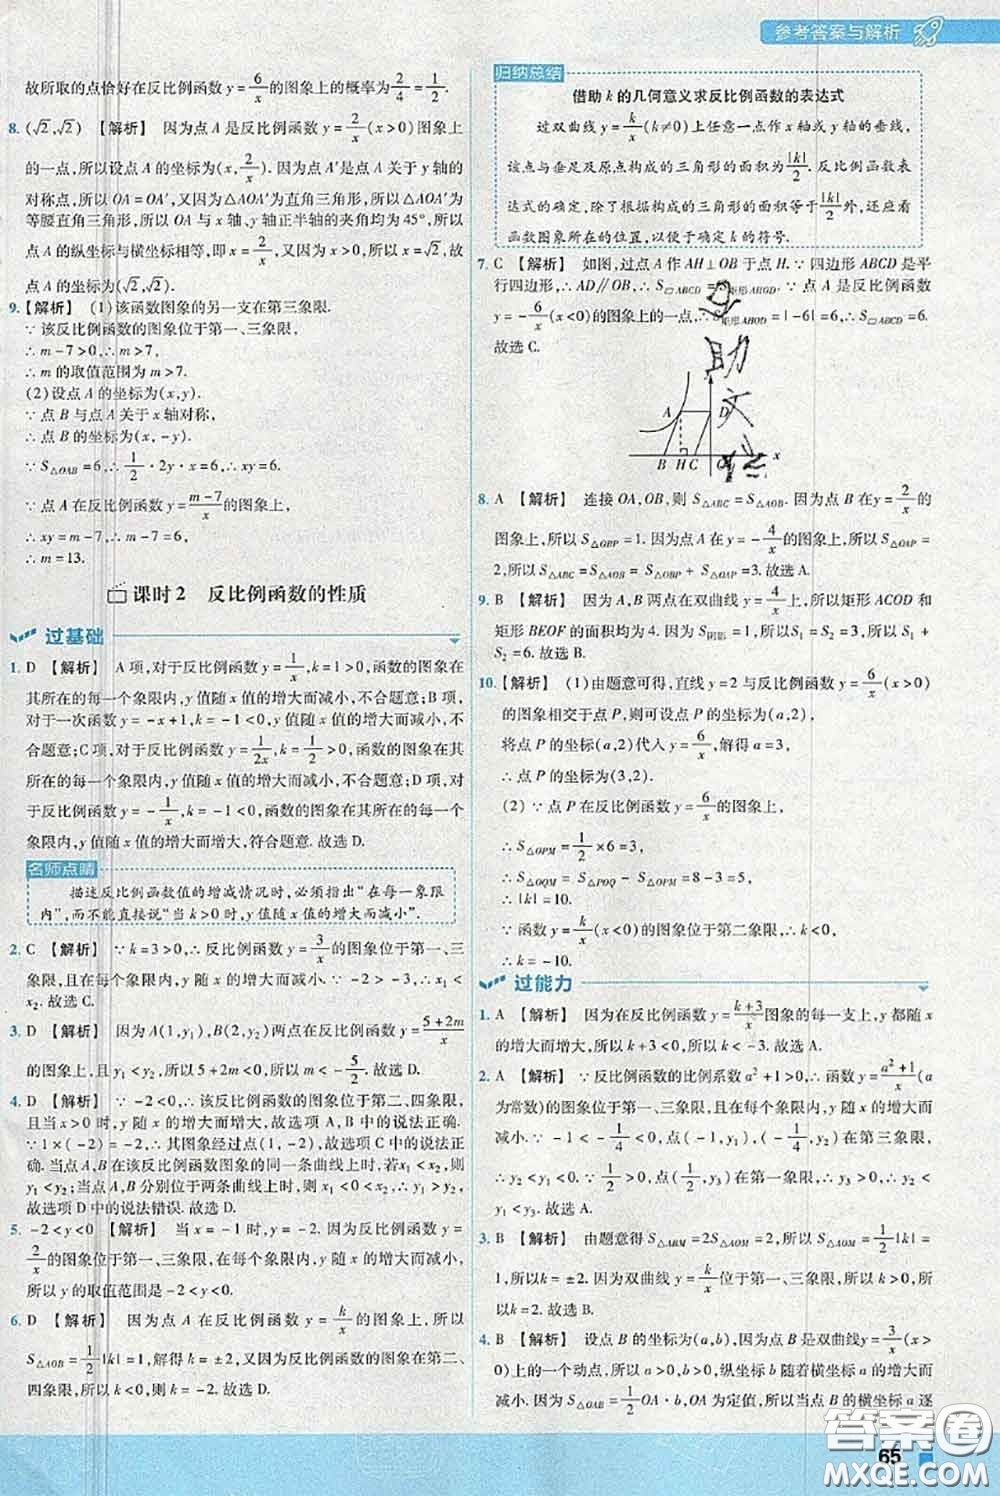 参考答案与解析
故所取的点恰好在反比例函数 y=6/x 的图象上的概率为2/4=1/2.
8. (√2,√2) 【解析】 因为点 A 是反比例函数 y=2/x(x>0)图象上
的一点,所以设点 A 的坐标为(x,2/x). 因为点 A′是点 A 关于 y轴的
对称点,所以 OA=OA′. 又因为△AOA′为直角三角形,所以△AOA′为
等腰直角三角形,所以 OA 与 x 轴、y轴正半轴的夹角均为45°,所以
点 A 的纵坐标与横坐标相等,即 x=2/x,又因为 x>0,所以x=√2,故
点 A 的坐标为(√2,√2).
9. 【解析】 (1)该函数图象的另一支在第三象限.
∵ 该反比例函数的图象位于第一、三象限,
∴ m-7>0,
∴ m 的取值范围为 m>7.
(2)设点 A 的坐标为(x,y).
∵ 点 B 与点 A 关于 x 轴对称,
∴ 点 B 的坐标为(x,-y).
∵ S△OAB=6,∴ 1/2·2y·x=6,∴ xy=6.
∵ 点 A 在反比例函数 y=(m-7)/x 的图象上,
∴ xy=m-7,∴ m-7=6,
∴ m=13.
课时2 反比例函数的性质
过基础
1. D 【解析】 A 项,对于反比例函数 y=1/x,k=1>0,函数的图象在
其所在的每一个象限内,y 值随 x 值的增大而减小,不合题意;B 项,
对于一次函数 y=-x+1,k=-1<0,y 值随 x 值的增大而减小,不
合题意;C 项,对于反比例函数 y=1/2x,k=1/2>0,函数的图象在其
所在的每一个象限内,y 值随 x 值的增大而减小,不合题意;D 项,对
于反比例函数 y=-1/x,k=-1<0,函数的图象在其所在的每一个
象限内,y 值随 x 值的增大而增大,符合题意. 故选 D.
名师点睛
描述反比例函数值的增减情况时,必须指出“在每一象限
内”,而不能直接说“当 k>0 时,y值随 x值的增大而减小”.
2. C 【解析】 ∵ k=3>0,∴ 反比例函数 y=3/x的图象位于第一、三
象限,且在每个象限内,y 随 x 的增大而减小. ∵ -2>-3,∴ x₁<
x₂. 故选 C.
3. D 【解析】 因为 A(1,y₁),B(2,y₂)两点在反比例函数 y=(5+2m)/x
的图象上,且 y₁<y₂,所以 5+2m<0,所以 m<-5/2. 故选 D.
4. D 【解析】 ∵ -2<0,∴ 该反比例函数的图象位于第二、四象限,
且当 x>0 时,y 随 x 的增大而增大,故选项 A,B 中的说法正确.
∵ 1×(-2)=-2,∴ 其图象经过点(1,-2),故选项 C 中的说法正
确. 当点 A,B 在该反比例函数图象的同一条曲线上时,若x₁<x₂,则
y₁<y₂;当点 A,B 分别位于两条曲线上时,若 x₁<0<x₂,则 y₁>y₂,
故选项 D 中的说法错误. 故选 D.
5. -2<y<0 【解析】 当 x=-1 时,y=-2. 因为反比例函数 y=
2/x的图象位于第一、三象限,且在每个象限内,y 随 x 的增大而减小,
所以 y 的取值范围是-2<y<0.
6. D 【解析】 因为点 A 在反比例函数 y=k/x 的图象上,所以
S△AOB=1/2|k|=1,解得 k=±2,又因为反比例函数的图象在第二、
四象限,所以 k<0,则 k=-2. 故选 D.
归纳总结
借助 k 的几何意义求反比例函数的表达式
过双曲线 y=k/x(k≠0)上任意一点作 x 轴或 y 轴的垂线,
该点与垂足及原点构成的三角形的面积为|k|/2. 反比例函数表
达式的确定,除了根据构成的三角形的面积等于|k|/2外,还应看
函数图象所在的位置,以便于确定 k 的符号.
7. C 【解析】 如图,过点 A 作 AH⊥OB 于点 H. ∵ 四边形 ABCD 是平
行四边形,∴ AD∥OB,∴ S▱ABCD=S矩形AHOD. ∵ 点 A 是反比例函数
y=-6/x(x<0)的图象上的一点,∴ S矩形AHOD=|-6|=6,∴ S▱ABCD=6.
故选 C.
助
文
A D
B H C O x
8. A 【解析】 连接 OA,OB,则 S△ABC=S△AOB. 因为点 B 在y=2/x的
图象上,所以 S△OBP=1. 因为点 A 在 y=-4/x的图象上,所以 S△OAP=
2,所以 S△ABC=S△AOB=S△OBP+S△OAP=3. 故选 A.
9. B 【解析】 因为 A,B 两点在双曲线 y=4/x上,所以矩形 ACOD 和
矩形 BEOF 的面积均为 4. 因为 S阴影=1,所以S₁=S₂=3,所以 S₁+
S₂=6. 故选 B.
10. 【解析】 (1)由题意可得,直线 y=2 与反比例函数 y=6/x(x>0)
的图象相交于点 P,则可设点 P 的坐标为(a,2),
将点 P 的坐标(a,2)代入 y=6/x,解得 a=3,
∴ 点 P 的坐标为(3,2).
(2) ∵ 点 P 在反比例函数 y=6/x的图象上,
∴ S△OPM=1/2×6=3,
∴ S△OQM=S△POQ-S△OPM=8-3=5,
∴ |k|=10.
∵ 函数 y=k/x(x<0)的图象位于第二象限,∴ k<0,
∴ k=-10.
过能力
1. A 【解析】 因为在反比例函数 y=(k+3)/x图象的每一支上,y 都随 x
的增大而增大,所以 k+3<0,所以 k<-3. 故选 A.
2. A 【解析】 ∵ 反比例函数的比例系数 a²+1>0,∴ 函数 y=(a²+1)/x(a
为常数)的图象在第一、三象限,且在每个象限内,y 随 x 的增大而
减小. ∵ -1<-1/4<0,∴ 点(-1,y₁),(-1/4,y₂)在第三象限,
∴ y₂<y₁<0. ∵ 1/2>0,∴ 点(1/2,y₃)在第一象限,∴ y₃>0,∴ y₂<
y₁<y₃. 故选 A.
3. B 【解析】 由题意得 S△ABM=2S△AOM=2,所以 S△AOM=1/2|k|=
1,所以k=±2. 因为双曲线 y=k/x位于第一、三象限,所以 k>0,所
以k=2. 故选 B.
4. B 【解析】 设点 B 的坐标为(a,b),因为点 B 是双曲线y=3/x(x>
0)上的一个动点,所以 a>0,b>0,纵坐标 b随着横坐标 a的增大而
减小. 因为 S△OAB=1/2OA·b,OA 为定值,所以当点 B 的横坐标 a 逐
65
答案圈
MXQE.COM